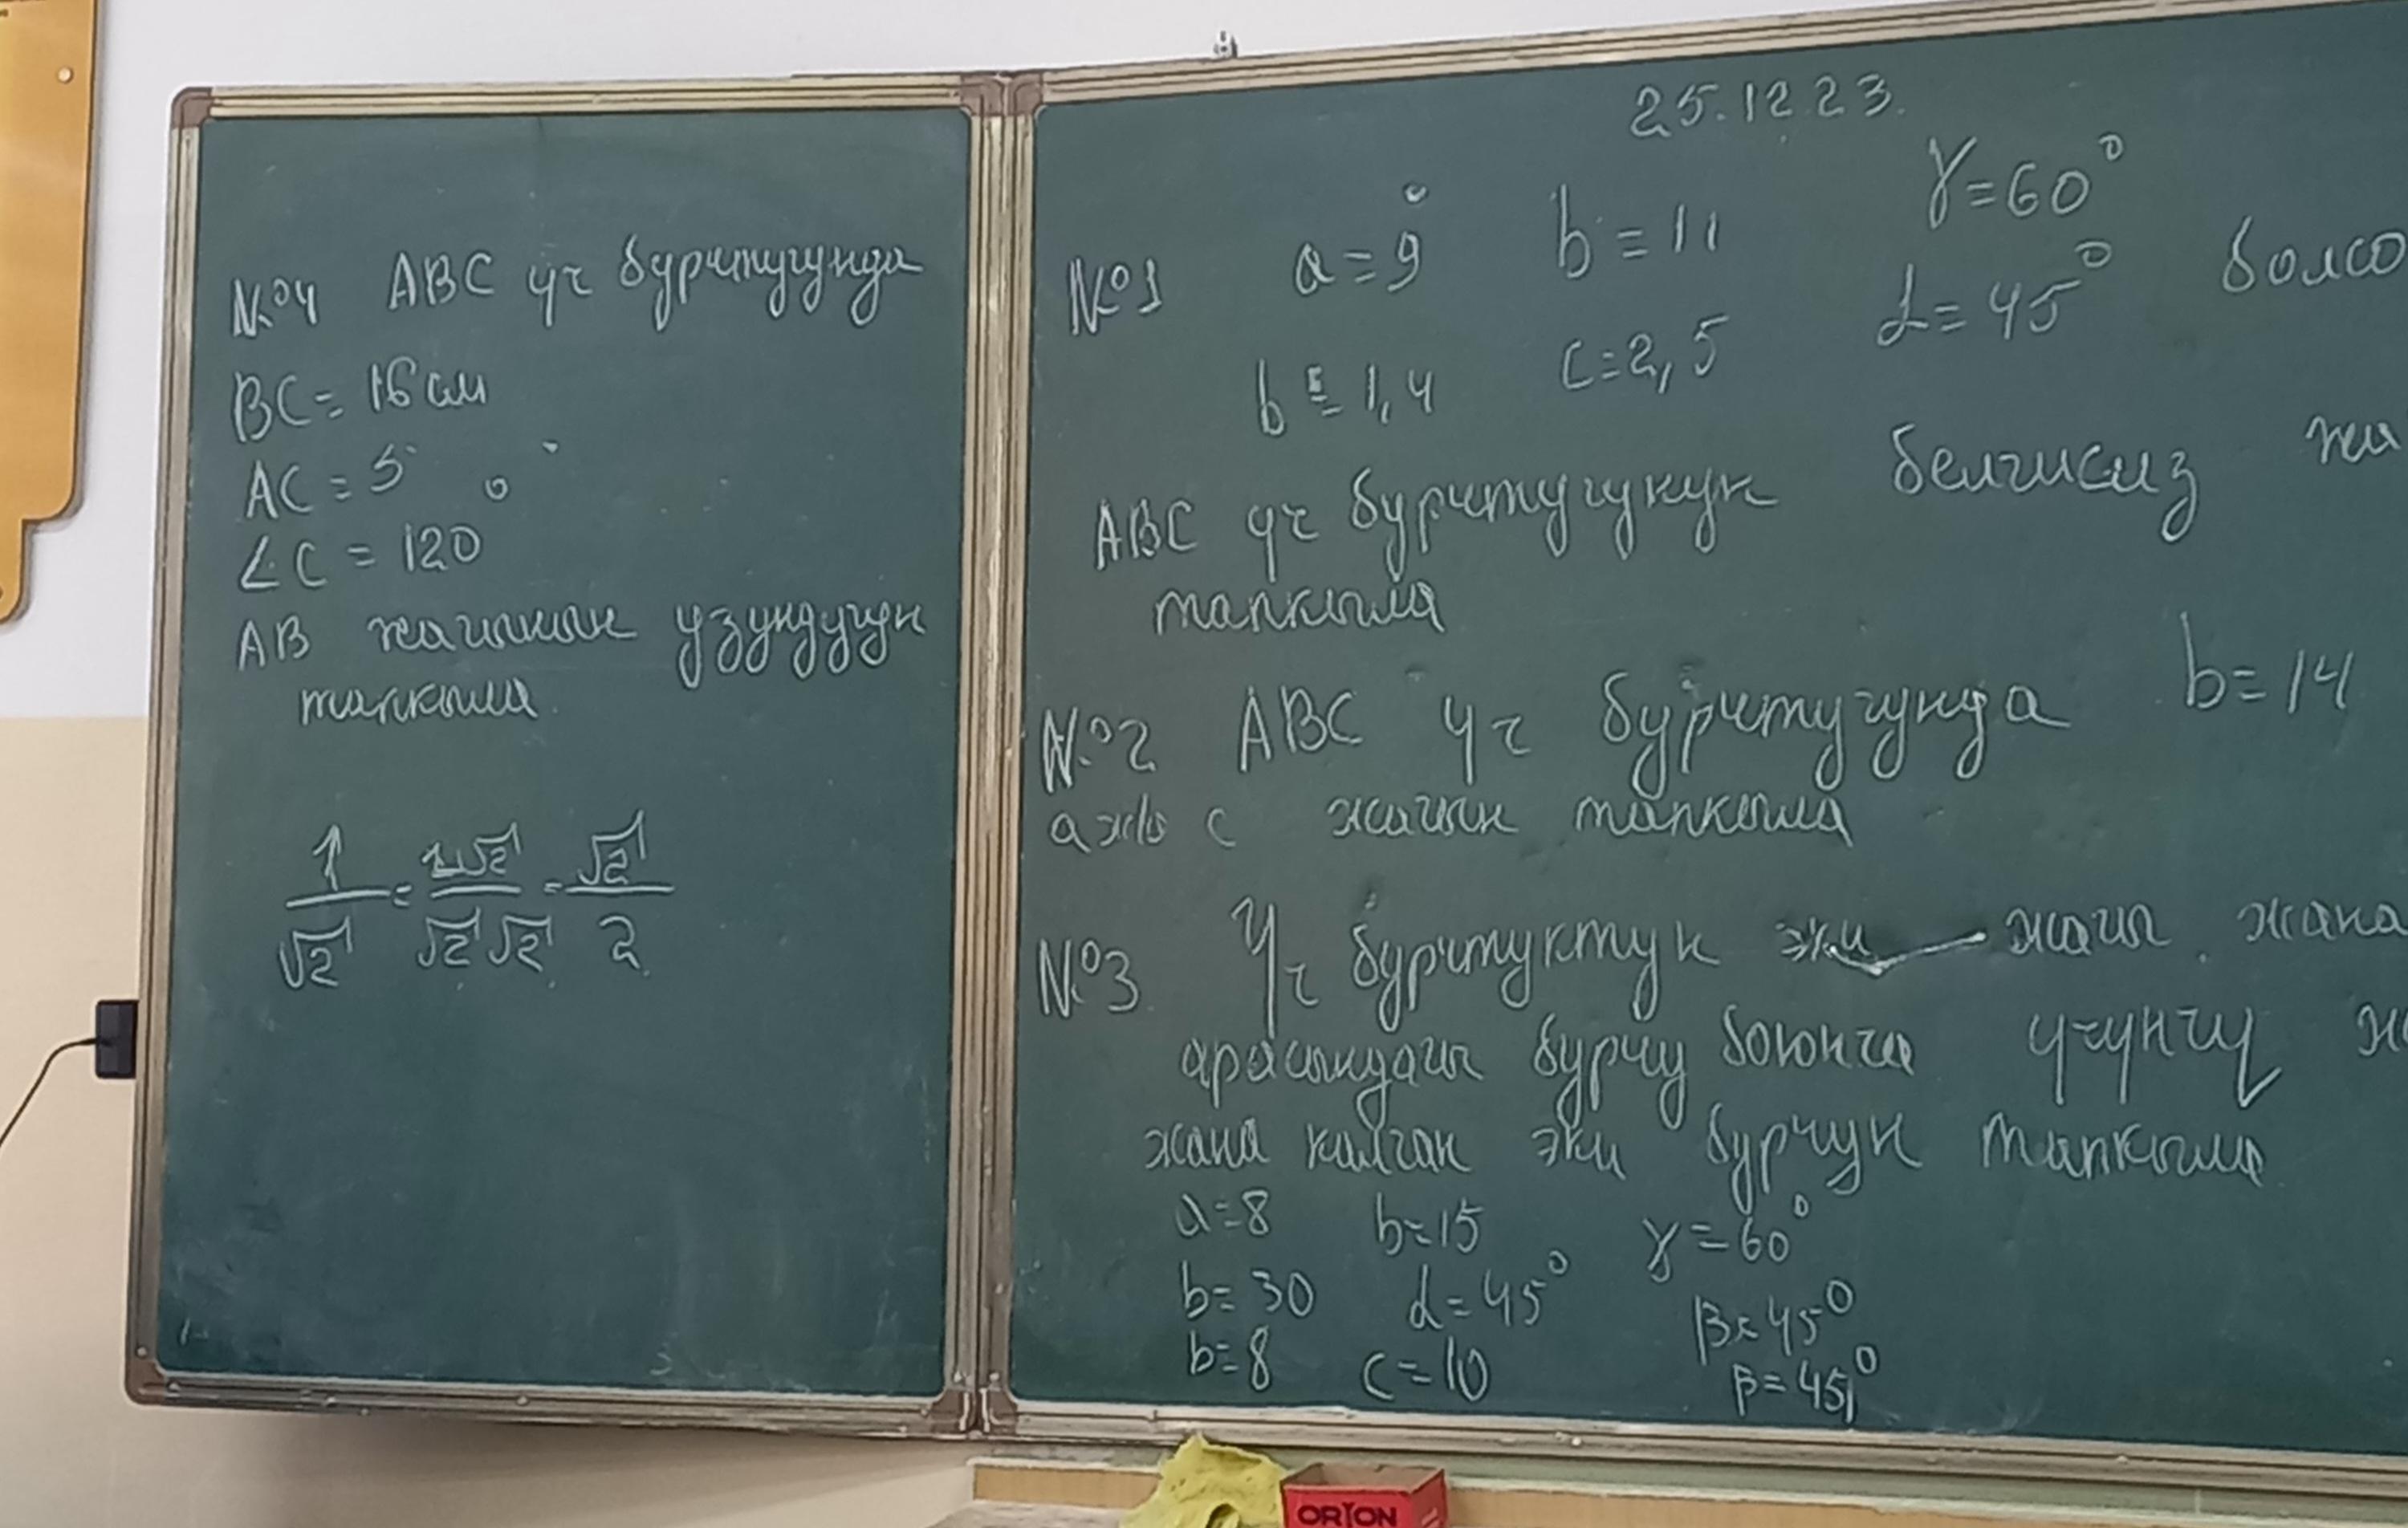 №4 ABC үч бурчтугунда
BC = 16 см
AC = 5
∠C = 120°
AB жагынын узундугун
тапкыла.
1/√2 = 1√2/√2√2 = √2/2
25.12.23.
№1 a = 9 b = 11 γ = 60°
b = 1,4 c = 2,5 α = 45° болсо
ABC үч бурчтугунун белгисиз
тапкыла
№2 ABC үч бурчтугунда b = 14
a ж/а c жагын тапкыла
№3 Үч бурчтуктун эки жагы жана
арасындагы бурчу боюнча үчүнчү
жана калган эки бурчун тапкыла
a = 8 b = 15 γ = 60°
b = 30 α = 45° β = 45°
b = 8 c = 10 β = 45°
ORYON